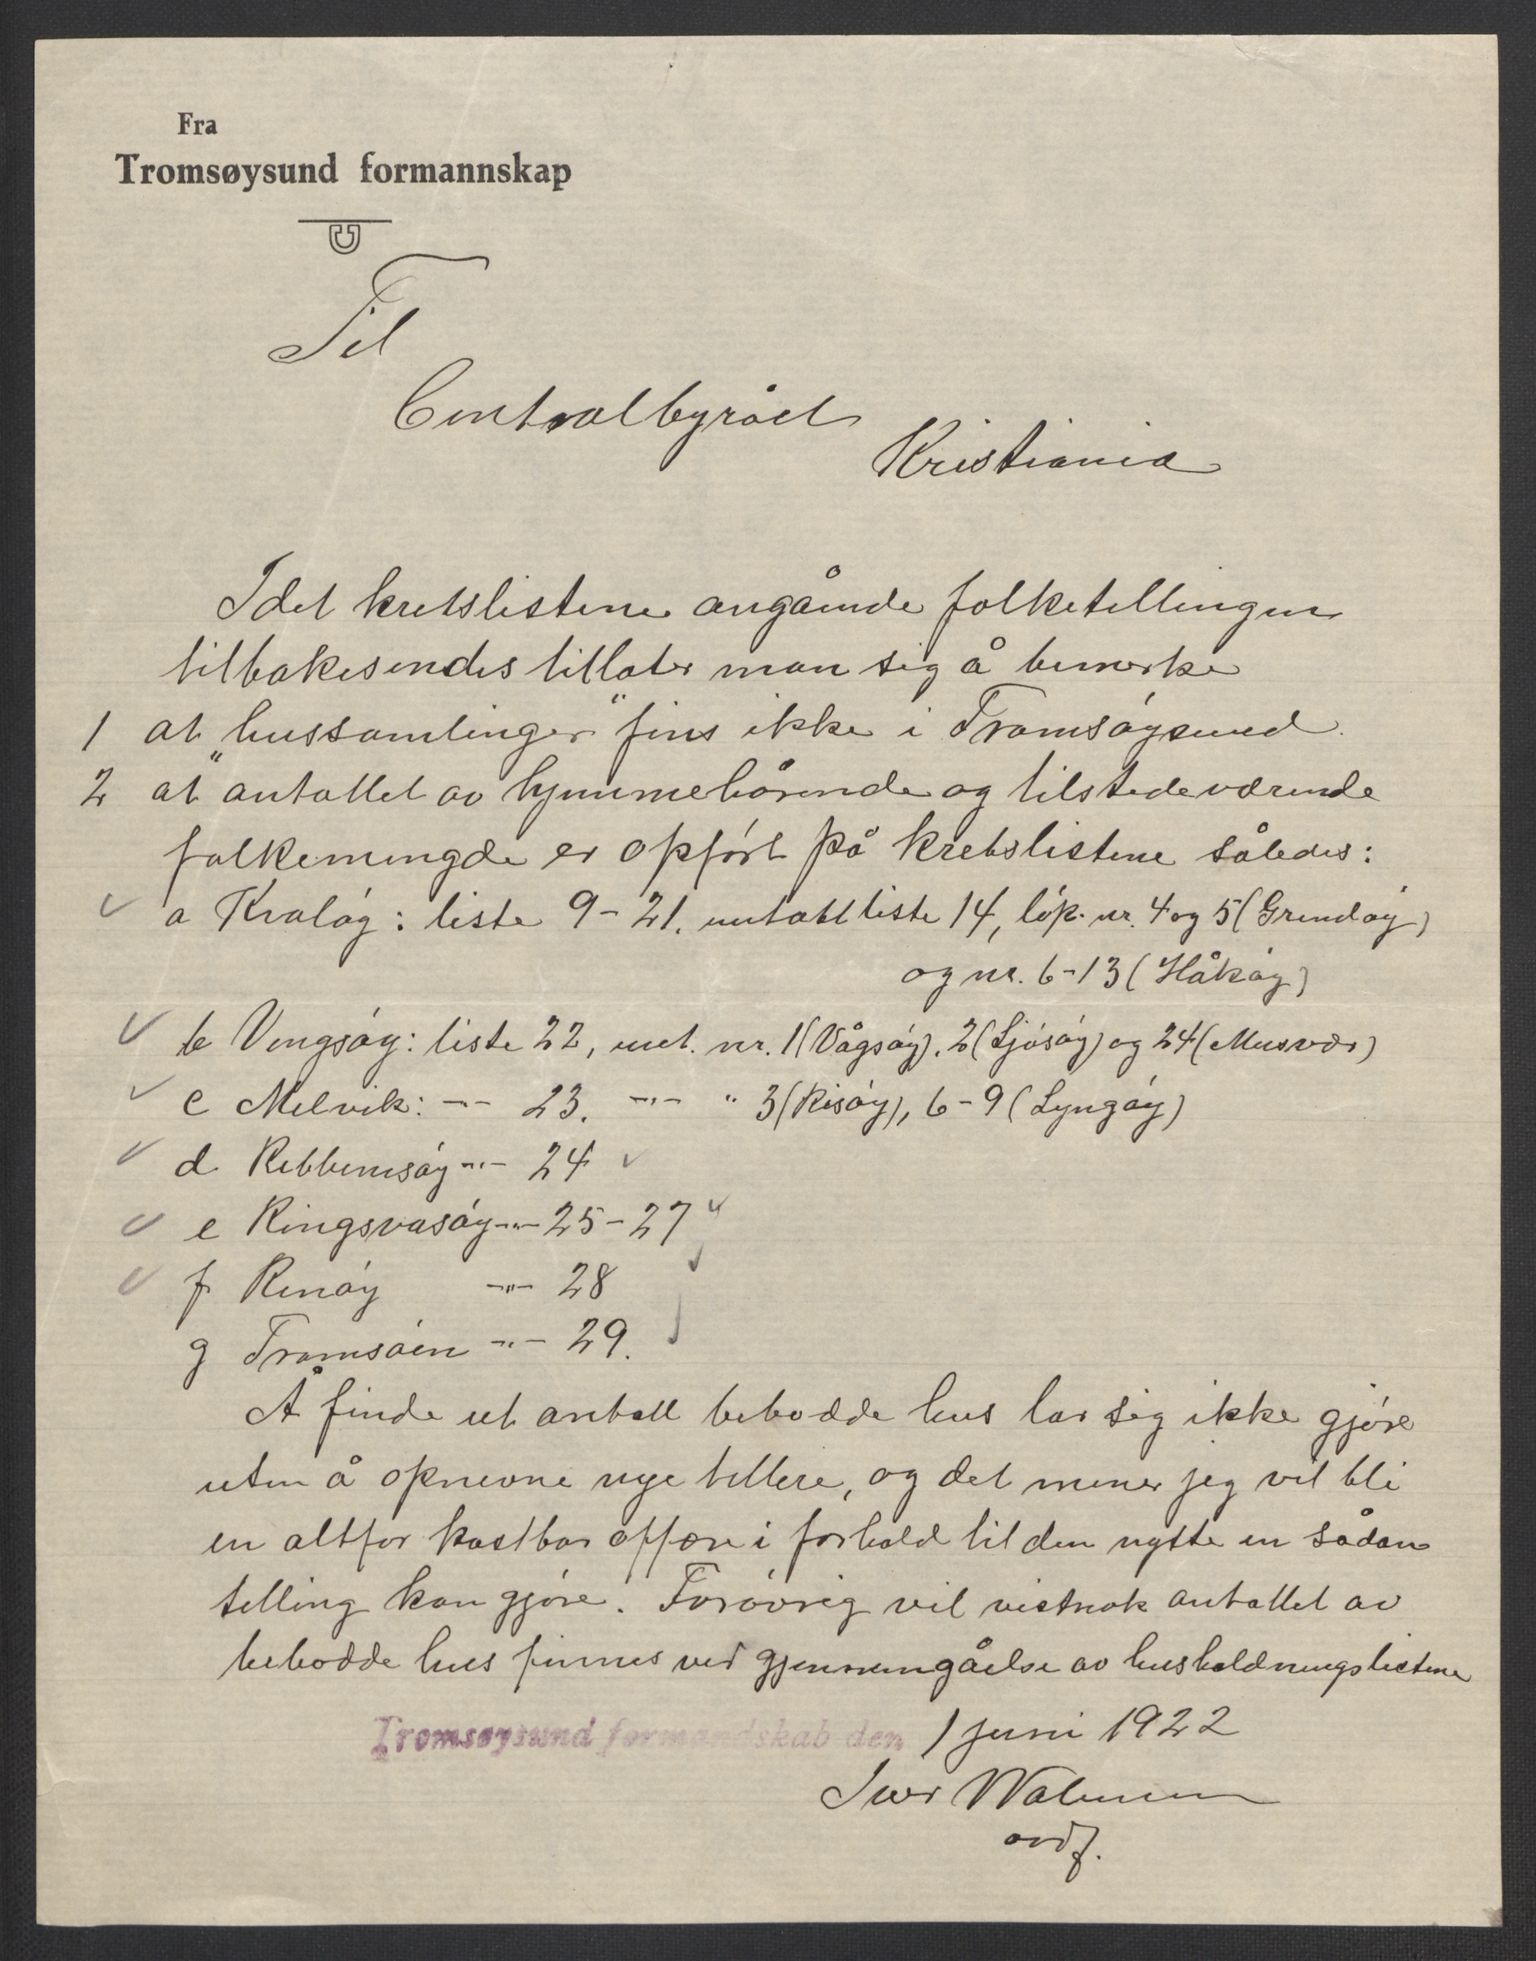 Fra
Tromsøysund formannskap
Til
Centralbyrået
Kristiania
Idet kretslistene angående folketellingen
tilbakesendes tillater man sig å bemerke
1 at "hussamlinger" fins ikke i Tromsøysund.
2 at antallet av hjemmehørende og tilstedeværende
folkemengde er opført på kretslistene således:
a Kvaløy: liste 9-21. untatt liste 14, løp. nr. 4 og 5 (Grindøy)
og nr. 6-13 (Håkøy)
b Vengsøy: liste 22, unt. nr. 1 (Vågsøy), 2 (Sjøsøy) og 24 (Musvær)
c Melvik: -"- 23. -"- " 3 (Risøy), 6-9 (Lyngøy)
d Rebbenesøy -"- 24
e Ringsvasøy -"- 25-27
f Renøy -"- 28
g Tromsøen -"- 29.
Å finde ut antall bebodde hus lar sig ikke gjøre
uten å opnevne nye tellere, og det mener jeg vil bli
en altfor kostbar affære i forhold til den nytte en sådan
telling kan gjøre. Forøvrig vil vistnok antallet av
bebodde hus finnes ved gjennemgåelse av husholdningslistene
Tromsøysund formandskab den 1 juni 1922
Iver Walnum
ordf.